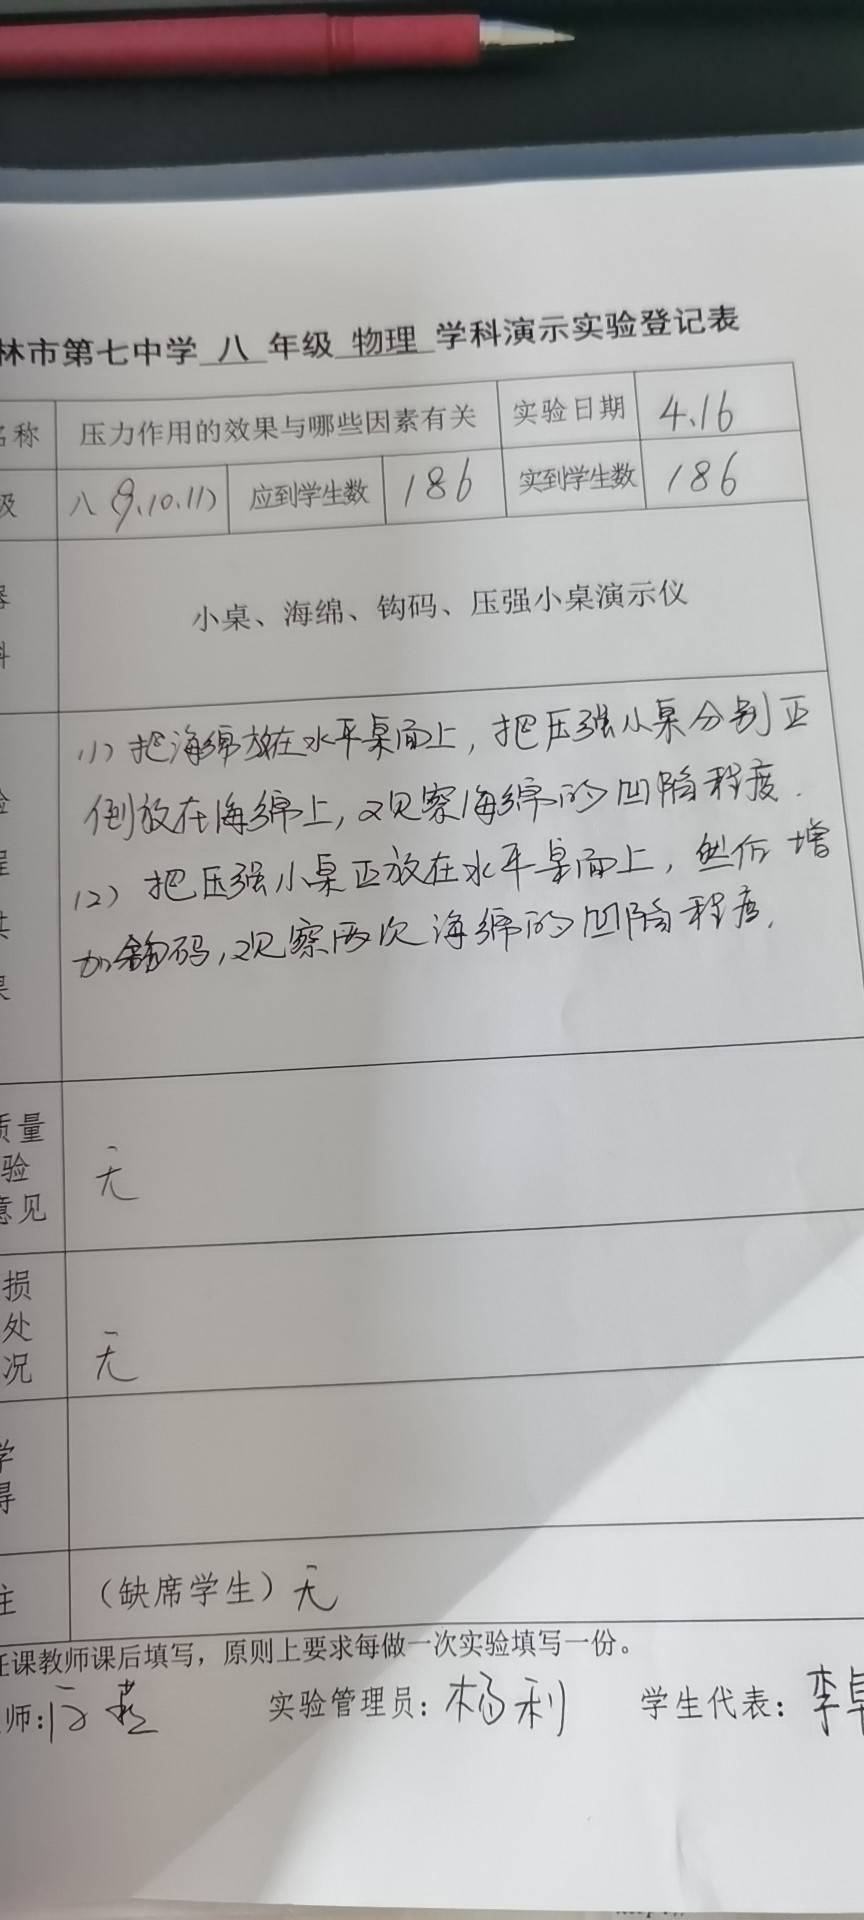 林市第七中学 八 年级 物理 学科演示实验登记表
名称 压力作用的效果与哪些因素有关 实验日期 4.16
级 八(9.10.11) 应到学生数 186 实到学生数 186
小桌、海绵、钩码、压强小桌演示仪
(1)把海绵放在水平桌面上,把压强小桌分别正
倒放在海绵上,观察海绵的凹陷程度.
(2)把压强小桌正放在水平桌面上,然后增
加钩码,观察两次海绵的凹陷程度.
质量
验
意见
无
损
处
况
无
学
得
注 (缺席学生)无
任课教师课后填写,原则上要求每做一次实验填写一份。
师: 实验管理员:杨利 学生代表:李